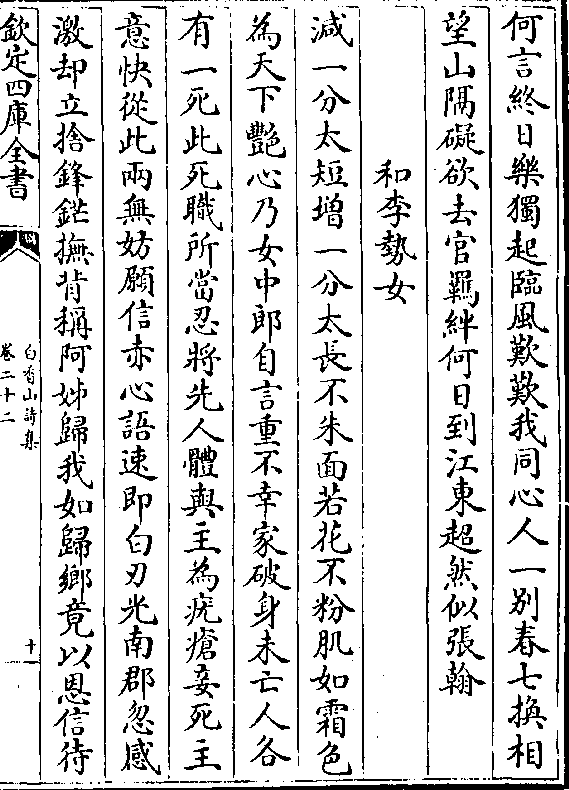 何言終日樂獨起臨風歎歎我同心人一别春七換相
望山隔礙欲去官羈絆何日到江東超然似張翰
和李勢女
減一分太短增一分太長不朱面若花不粉肌如霜色
為天下艷心乃女中郎自言重不幸家破身未亡人各
有一死此死職所當忍將先人體與主為疣瘡妾死主
意快從此兩無妨願信赤心語速即白刃光南郡忽感
激却立捨鋒鋩撫背稱阿姊歸我如歸鄉竟以恩信待
欽定四庫全書
白香山詩集
卷二十二
十